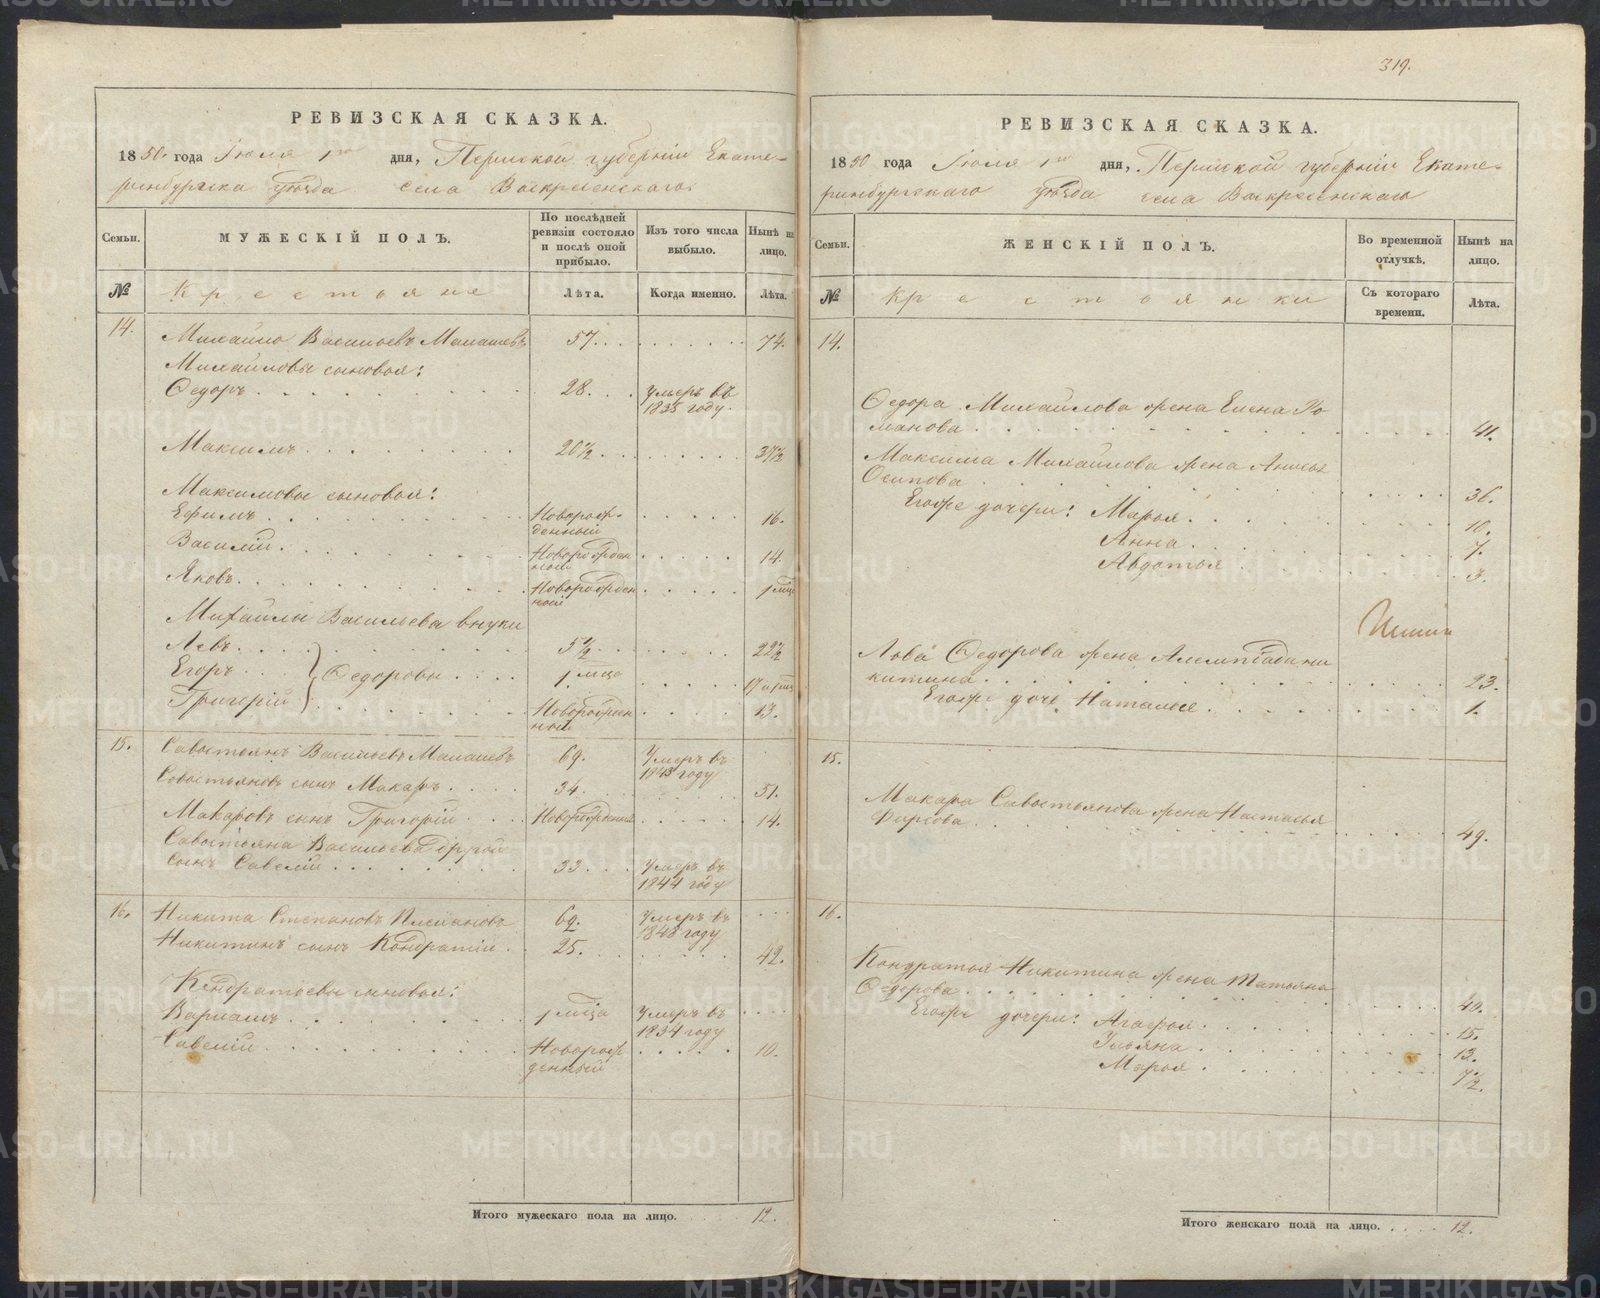 319.
РЕВИЗСКАЯ СКАЗКА.
1850. года Іюля 1го дня, Пермской губерніи Екате-
ринбургска уѣзда села Воскресенскаго.
Семьи.
МУЖЕСКІЙ ПОЛЪ.
По послѣдней ревизіи состояло и послѣ оной прибыло.
Изъ того числа выбыло.
Нынѣ на лицо.
№
Крестьяне
Лѣта.
Когда именно.
Лѣта.
14. Михайло Васильевъ Малашевъ 57. 74.
Михайловы сыновья:
Ѳедоръ 28. умеръ въ 1835 году.
Максимъ 20½ 37½
Максимовы сыновья:
Ефимъ Новорожденный 16.
Василій Новорожденный 14.
Яковъ Новорожденный 1 мѣс
Михайлы Васильева внуки
Левъ 5½ 22½
Егоръ Ѳедоровы 1 мѣсе 17 и 1 мѣс
Григорій Новорожденный 13.
15. Савостьянъ Васильевъ Малашевъ 69. Умеръ въ 1843 году
Савостьяновъ сынъ Макаръ 34. 51.
Макаровъ сынъ Григорій Новорожденный 14.
Савостьяна Васильева другой
сынъ Савелій 33 Умеръ въ 1844 году
16. Никита Степановъ 69. Умеръ въ 1848 году
Никитинъ сынъ Кондратій 25. 42.
Кондратьевы сыновья:
Варламъ 1 мѣсца Умеръ въ 1834 году
Савелій Новорожденный 10.
Итого мужескаго пола на лицо. 12.
РЕВИЗСКАЯ СКАЗКА.
1850 года Іюля 1го дня, Пермской губерніи Екате-
ринбургскаго уѣзда села Воскресенскаго
Семьи.
ЖЕНСКІЙ ПОЛЪ.
Во временной отлучкѣ.
Нынѣ на лицо.
№
Крестьянки
Съ котораго времени.
Лѣта.
14.
Ѳедора Михайлова жена Елена Ро-
манова 41.
Максима Михайлова жена Анисья
Осипова 36.
Егожъ дочери: Марья 10.
Анна 7.
Авдотья 3.
Льва Ѳедорова жена Алемпіада Ни
китина 23.
Егожъ дочь Наталья 1.
15.
Макара Савостьянова жена Настасья
Фирсова 49.
16.
Кондратья Никитина жена Татьяна
Ѳедорова 40.
Егожъ дочери: Агафья 15.
Ульяна 13.
Марья 7½.
Итого женскаго пола на лицо. 12.
METRIKI.GASO-URAL.RU